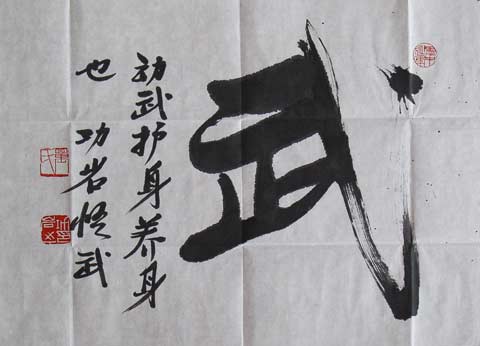 武
武护身养身
也 功岩悟武